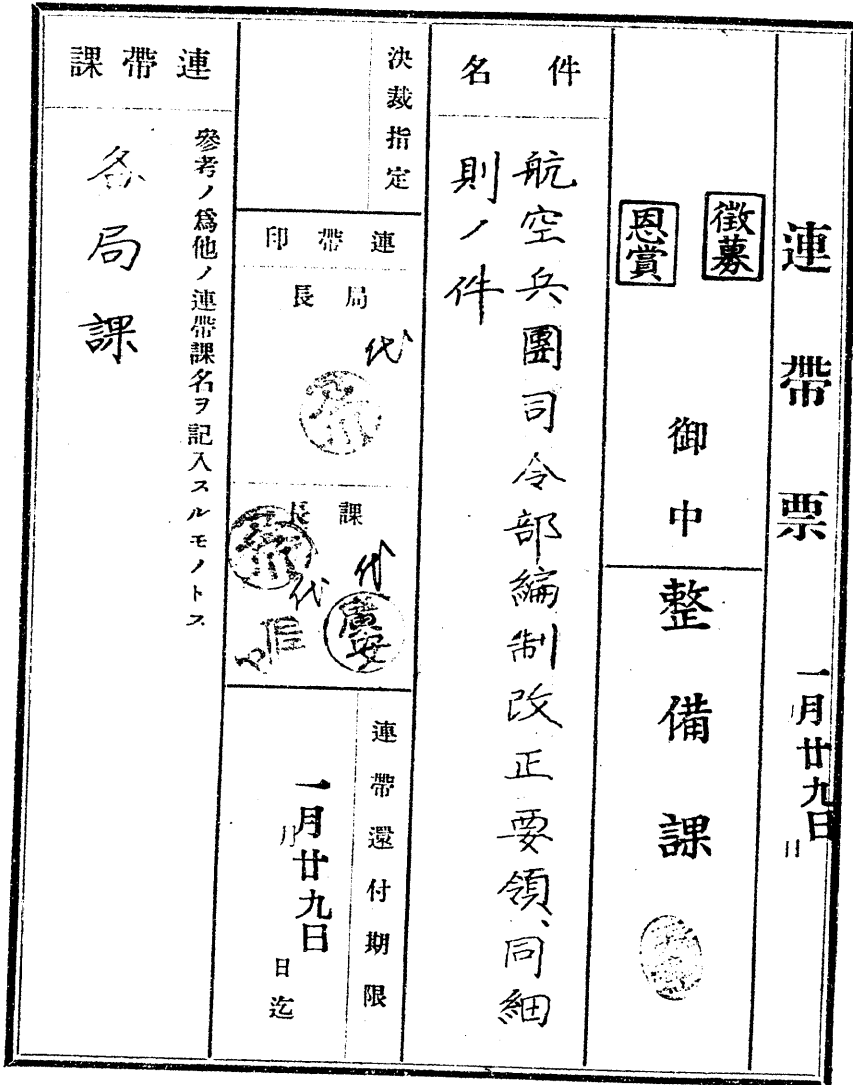 連帶票
一月廿九日
月
日
徵募
恩賞
御中
整備課
件名
航空兵團司令部編制改正要領、同細
則ノ件
決裁指定
連帶印
局長
代
課長
代
廣安
代
連帶還付期限
一月廿九日
月
日迄
連帶課
參考ノ爲他ノ連帶課名ヲ記入スルモノトス
各局課